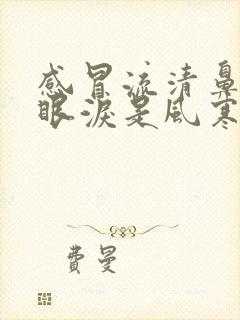 感冒流清鼻
眼淚是風寒
費曼